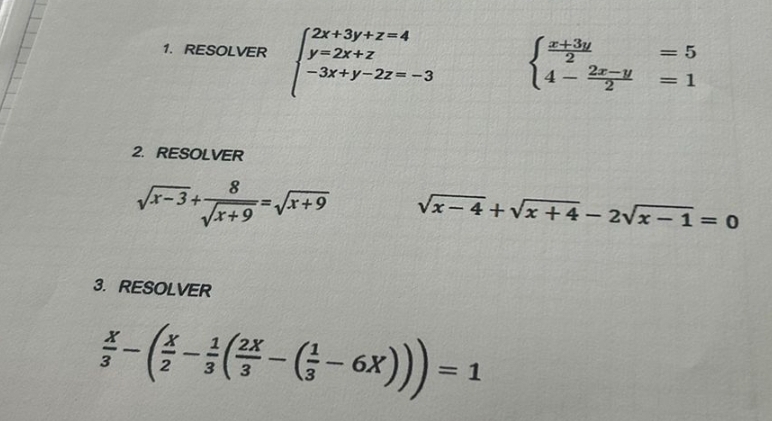 1. RESOLVER
2x+3y+z=4
y=2x+z
−3x+y−2z=−3
x+3y/2 = 5
4 − 2x−y/2 = 1
2. RESOLVER
√x−3 + 8/√x+9 = √x+9
√x − 4 + √x + 4 − 2√x − 1 = 0
3. RESOLVER
X/3 − (X/2 − 1/3 (2X/3 − (1/3 − 6X))) = 1